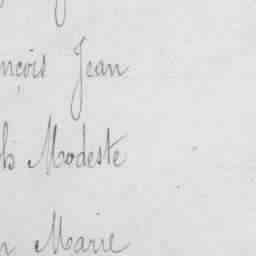 nçois Jean
h Modeste
n Marie